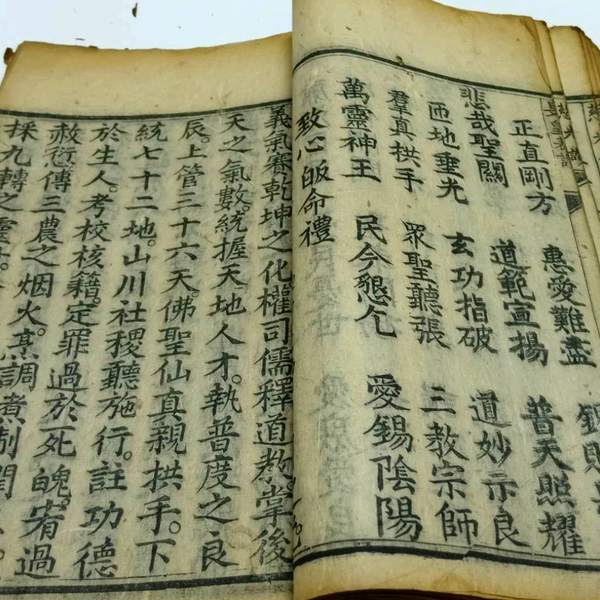 正直剛方 惠愛難盡
悲哉聖關 道範宣揚 普天照耀
匝地垂光 玄功指破 道妙示良
羣真拱手 眾聖聽張 三教宗師
萬靈神王 民今懇乞 愛錫陰陽
致心皈命禮
義氣賽乾坤之化權司儒釋道教掌後
天之氣數。統握天地人才。執普度之良
辰。上管三十六天。佛聖仙真親拱手。下
統七十二地。山川社稷聽施行。註功德
於生人。考校核籍。定罪過於死魄。宥過
赦衍傳三農之烟火。烹調煮制
採九轉之靈